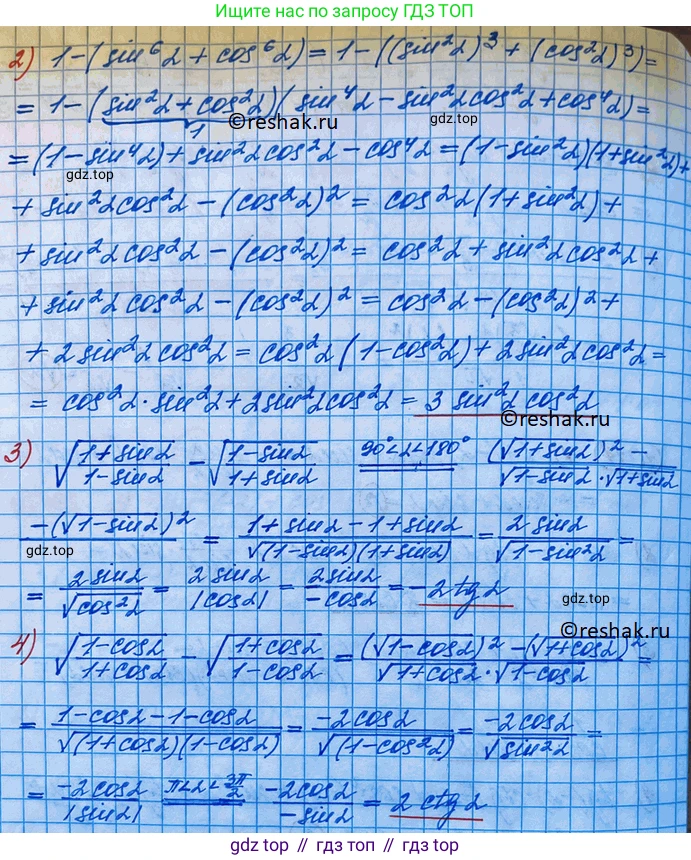 Ищите нас по запросу ГДЗ ТОП
2) 1-(sin⁶α + cos⁶α) = 1-((sin²α)³ + (cos²α)³) =
= 1-(sin²α + cos²α)(sin⁴α - sin²α cos²α + cos⁴α) =
1
©reshak.ru
gdz.top
= (1-sin⁴α) + sin²α cos²α - cos⁴α = (1-sin²α)(1+sin²α) +
gdz.top
+ sin²α cos²α - (cos²α)² = cos²α(1+sin²α) +
+ sin²α cos²α - (cos²α)² = cos²α + sin²α cos²α +
+ sin²α cos²α - (cos²α)² = cos²α - (cos²α)² +
+ 2 sin²α cos²α = cos²α (1-cos²α) + 2 sin²α cos²α =
= cos²α · sin²α + 2 sin²α cos²α = 3 sin²α cos²α
gdz.top
©reshak.ru
3) √((1+sinα)/(1-sinα)) - √((1-sinα)/(1+sinα)) 90°<α<180° = (√(1+sinα))² - / √(1-sinα) · √(1+sinα)
-(√(1-sinα))² = (1+sinα-1+sinα)/√((1-sinα)(1+sinα)) = 2 sinα/√(1-sin²α) =
gdz.top
gdz.top
= 2 sinα/√(cos²α) = 2 sinα/|cosα| = 2 sinα/-cosα = -2 tg α
gdz.top
©reshak.ru
4) √((1-cosα)/(1+cosα)) - √((1+cosα)/(1-cosα)) = ((√(1-cosα))² - (√(1+cosα))²)/(√(1+cosα) · √(1-cosα)) =
= (1-cosα-1-cosα)/√((1+cosα)(1-cosα)) = -2cosα/√(1-cos²α) = -2cosα/√(sin²α) =
= -2cosα/|sinα| π<α<3π/2 = -2cosα/-sinα = 2 ctg α
gdz.top // gdz.top // gdz.top // gdz.top